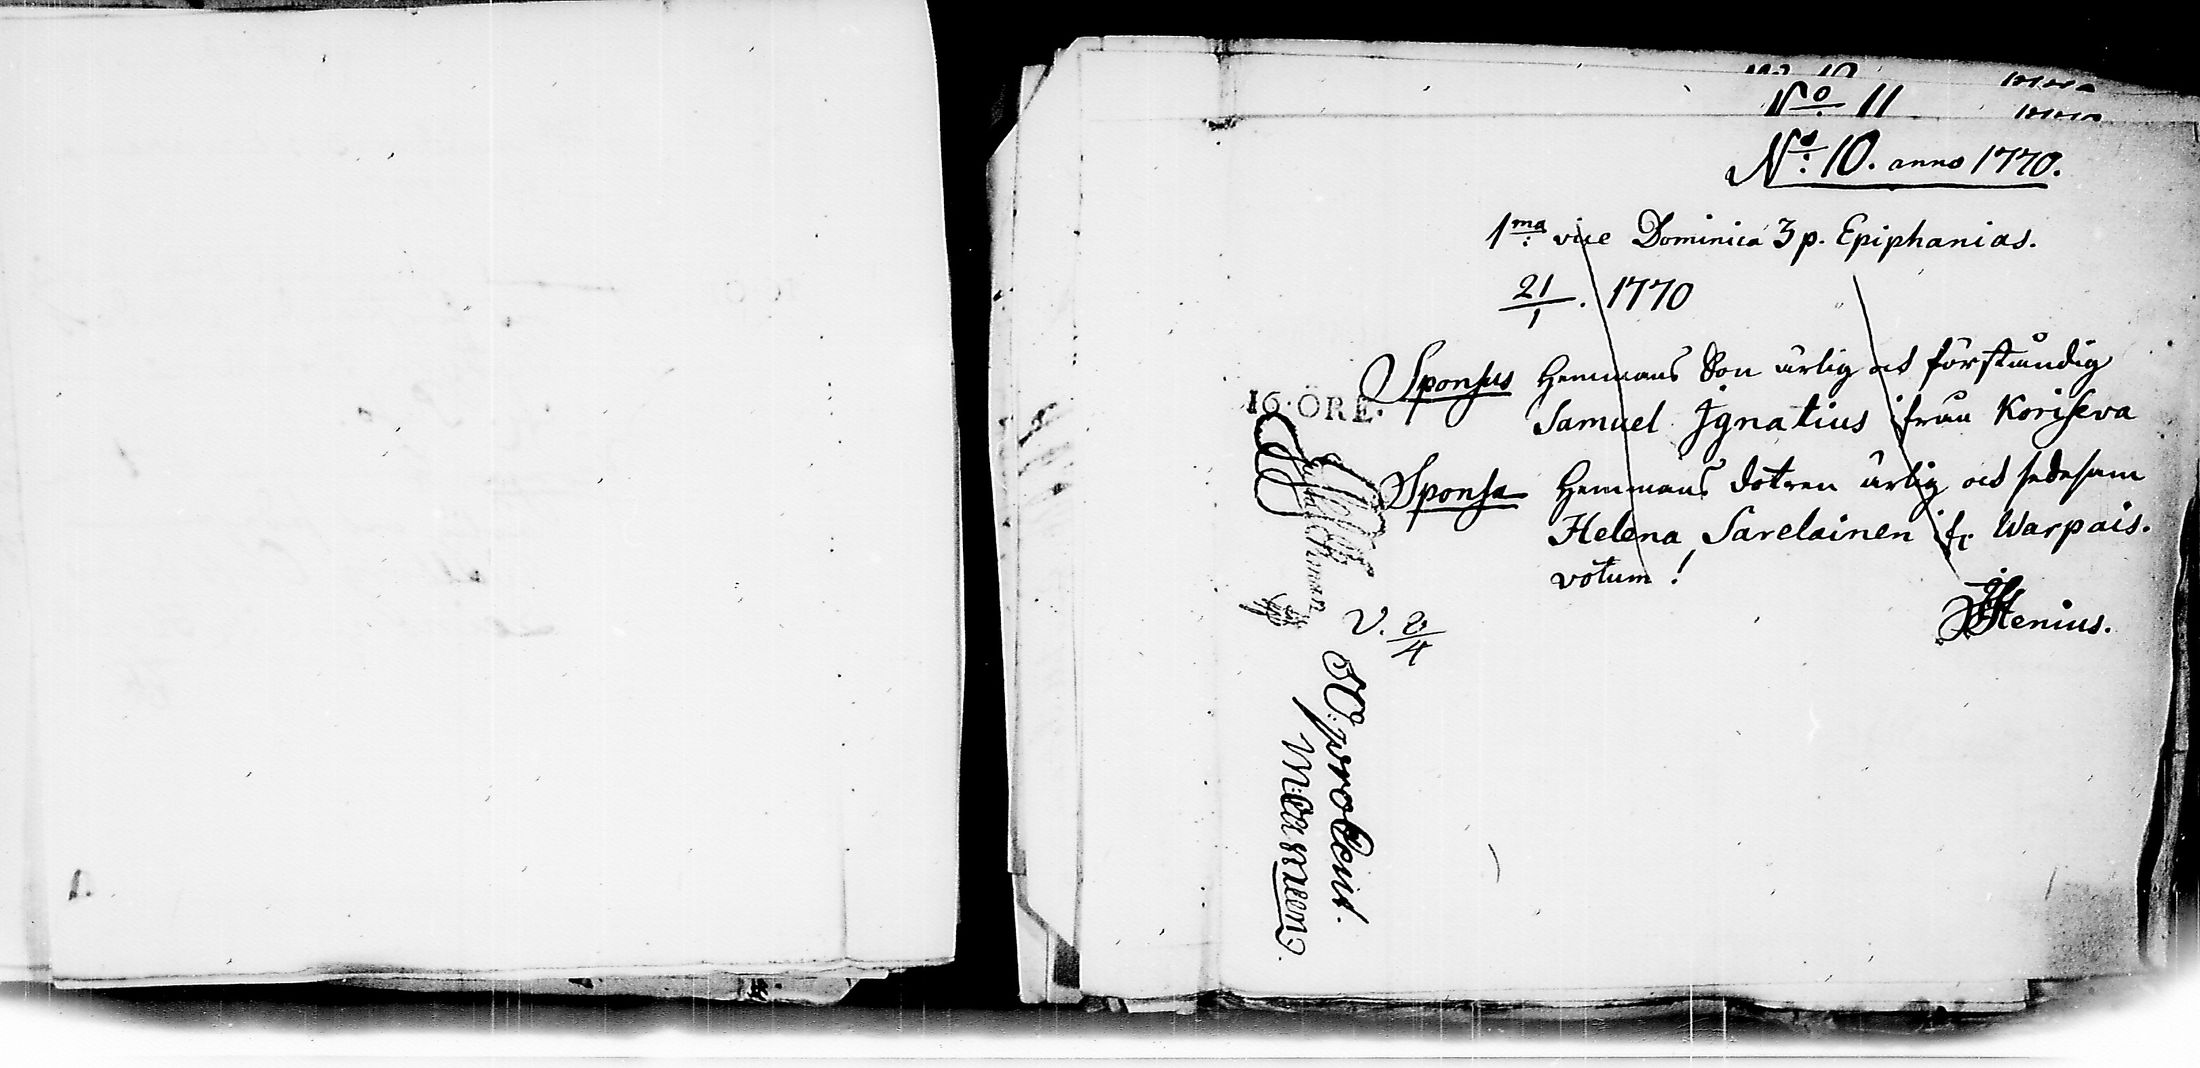 No 11
No: 10. anno 1770.
1ma: vice Dominica 3 p. Epiphanias.
21/1. 1770
Sponsus Hemmans Son ärlig och förståndig
Samuel Ignatius från Koriseva
16. ÖRE.
Sponsa Hemmans dotren ärlig och sedesam
Helena Sarelainen fr. Warpais.
votum!
Stenius.
V. 2/4
1.